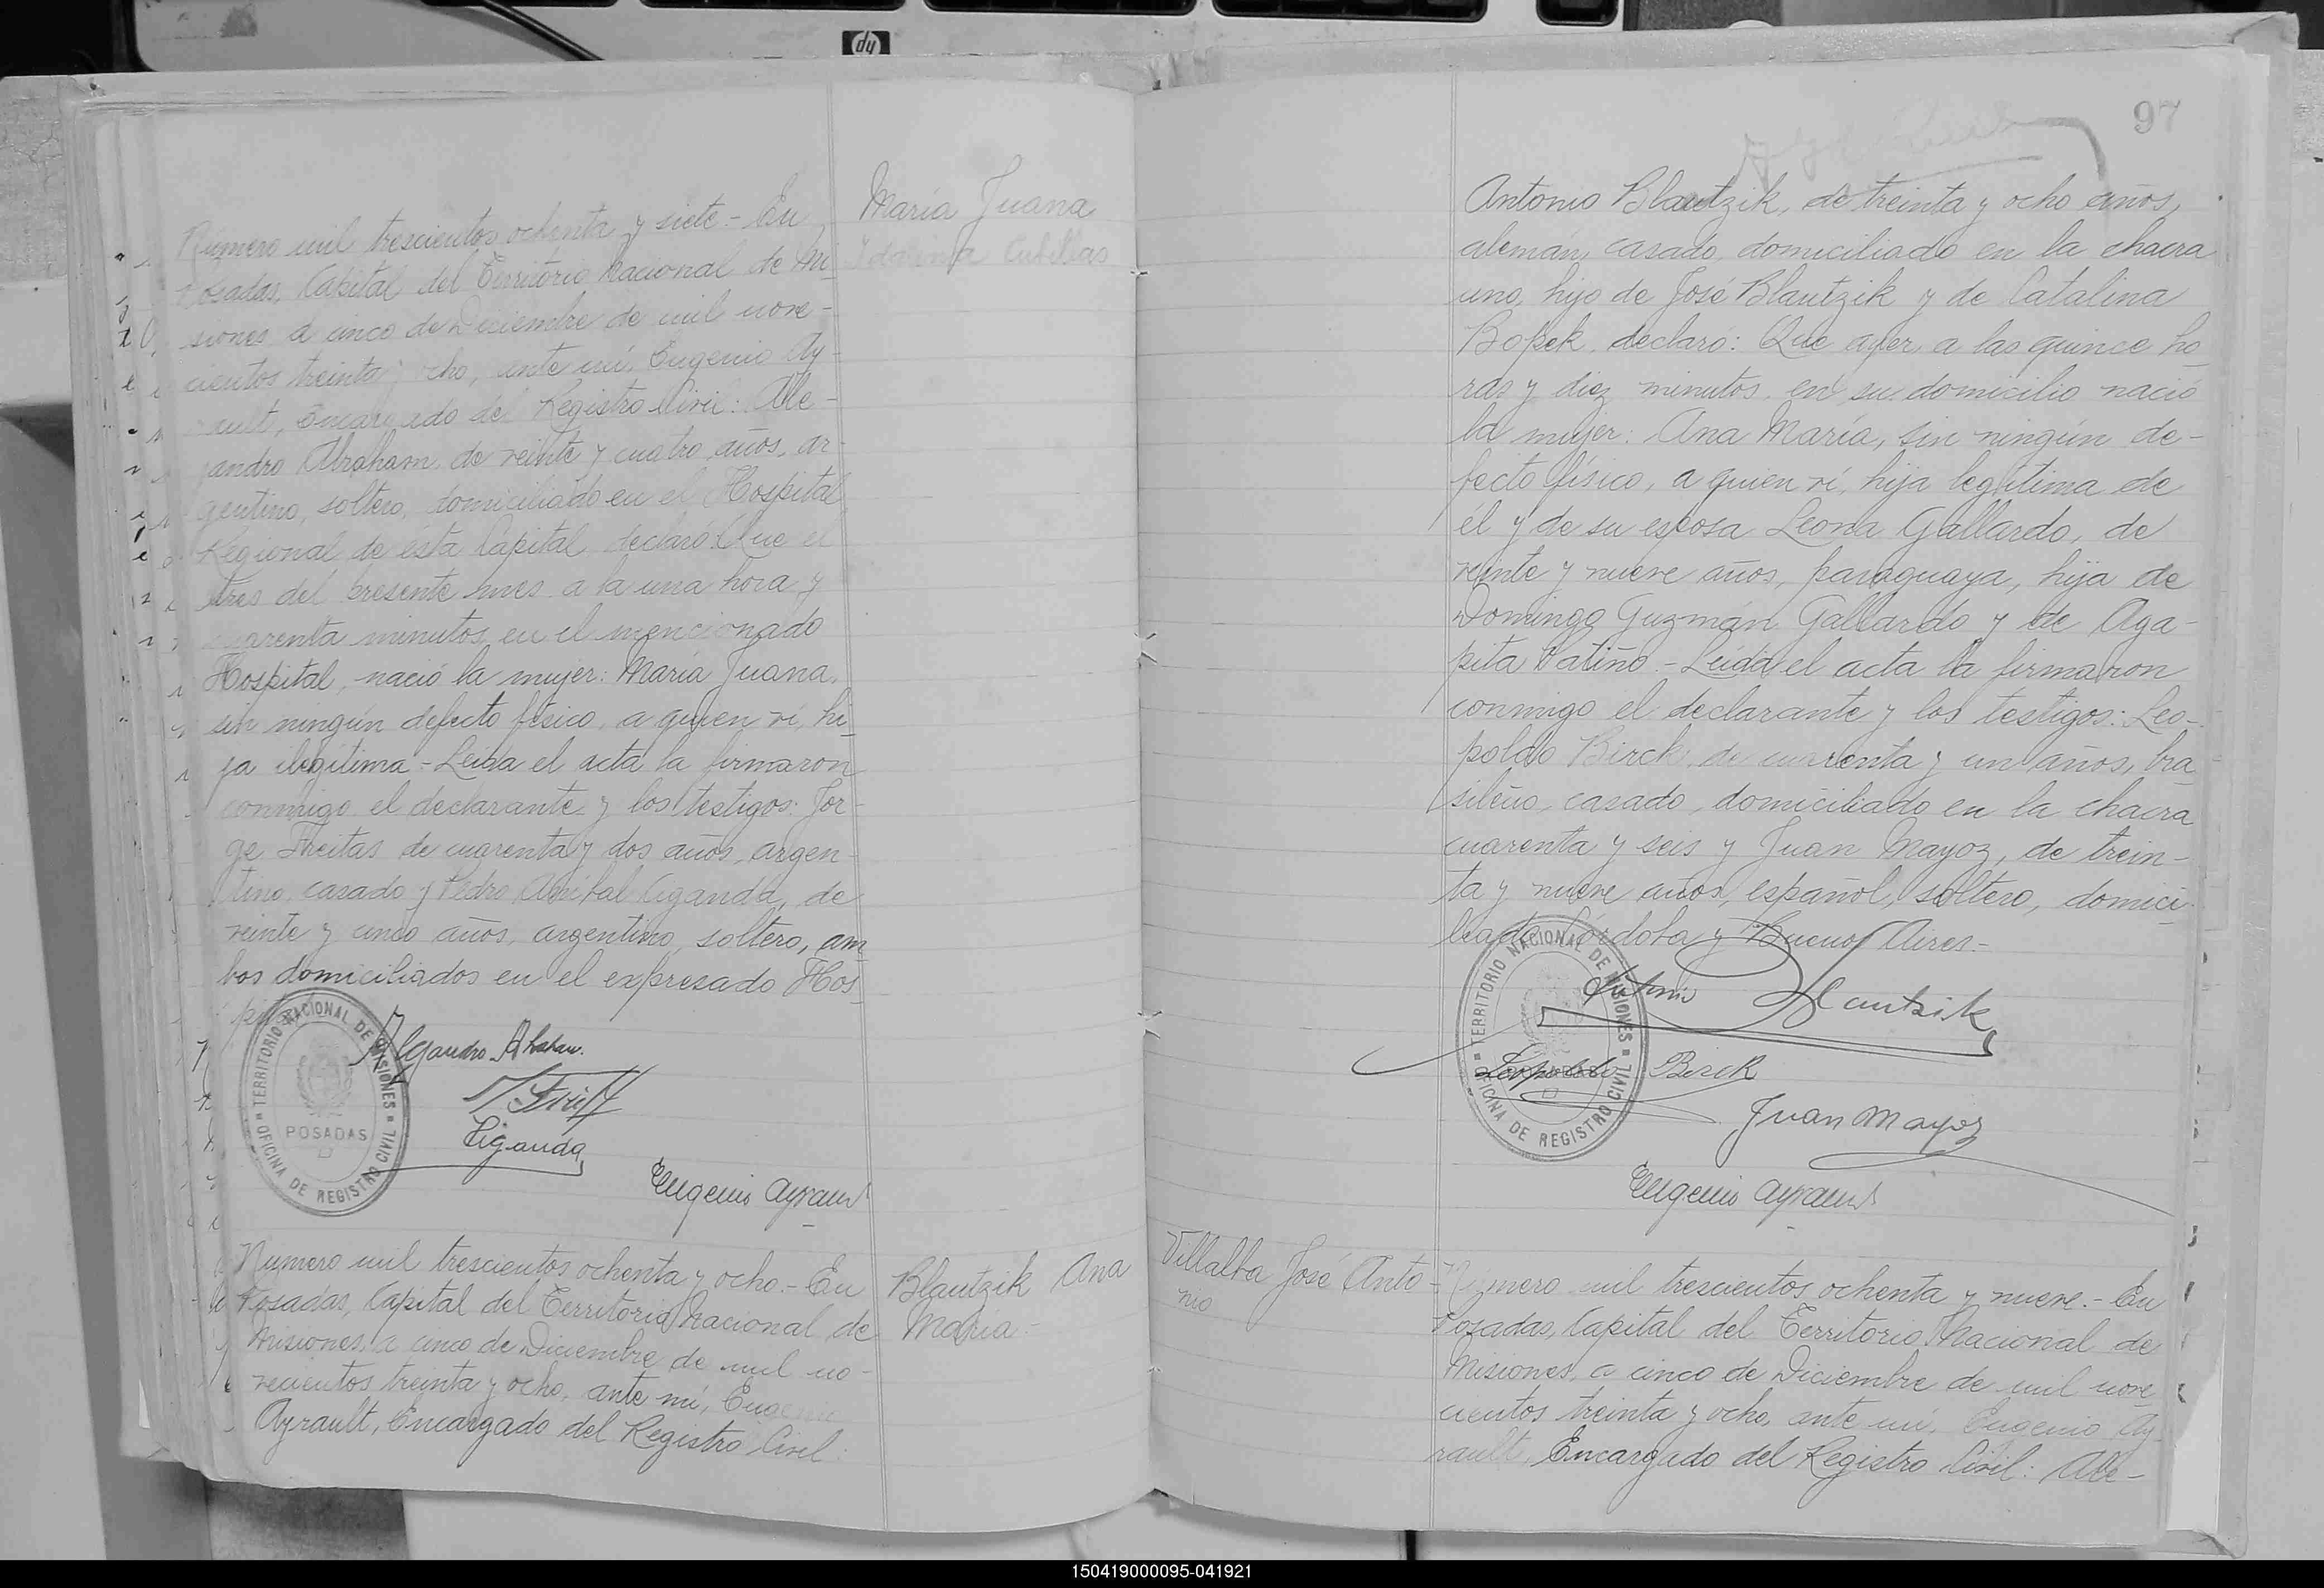 hp
Numero mil trescientos ochenta y siete.- En
Posadas, Capital del Territorio Nacional de Mi_
siones a cinco de Diciembre de mil nove-
cientos treinta y ocho, ante mí, Eugenio Ay-
rault, Encargado del Registro Civil: Ale-
jandro Abraham, de veinte y cuatro años, ar-
gentino, soltero, domiciliado en el Hospital
Regional de esta Capital, declaró: Que el
tres del presente mes a la una hora y
cuarenta minutos, en el mencionado
Hospital, nació la mujer: María Juana,
sin ningún defecto físico, a quien ví, hi_
ja ilegítima.- Leida el acta la firmaron
conmigo el declarante y los testigos: Jor-
ge Freitas de cuarenta y dos años, argen-
tino, casado y Pedro Anibal Ciganda, de
veinte y cinco años, argentino, soltero, am_
bos domiciliados en el expresado Hos_
María Juana
TERRITORIO NACIONAL DE MISIONES
POSADAS
OFICINA DE REGISTRO CIVIL
Alejandro Abraham.
Ciganda
Eugenio Ayrault
Numero mil trescientos ochenta y ocho.- En
Posadas, Capital del Territorio Nacional de
Misiones, a cinco de Diciembre de mil no-
vecientos treinta y ocho, ante mí, Eugenio
Ayrault, Encargado del Registro Civil:
Blautzik Ana
María-
97
Antonio Blautzik, de treinta y ocho años,
alemán, casado, domiciliado en la chacra
uno, hijo de José Blautzik y de Catalina
Bopek, declaró: Que ayer, a las quince ho_
ras y diez minutos, en su domicilio nació
la mujer: Ana María, sin ningún de-
fecto físico, a quien ví, hija legítima de
él y de su esposa Leona Gallardo, de
veinte y nueve años, paraguaya, hija de
Domingo Guzmán Gallardo y de Aga-
pita Patiño.- Leida el acta la firmaron
conmigo el declarante y los testigos: Leo-
poldo Birck de cuarenta y un años, bra_
sileño, casado, domiciliado en la chacra
cuarenta y seis y Juan Mayoz, de trein-
ta y nueve años, español, soltero, domici-
liado Córdoba y Buenos Aires.-
TERRITORIO NACIONAL DE MISIONES
OFICINA DE REGISTRO CIVIL
Antonio Blautzik
Leopoldo Birck
Juan Mayoz
Eugenio Ayrault
Villalba José Anto-
nio
Numero mil trescientos ochenta y nueve.- En
Posadas, Capital del Territorio Nacional de
Misiones, a cinco de Diciembre de mil nove_
cientos treinta y ocho, ante mí, Eugenio Ay_
rault, Encargado del Registro Civil: Ale-
150419000095-041921